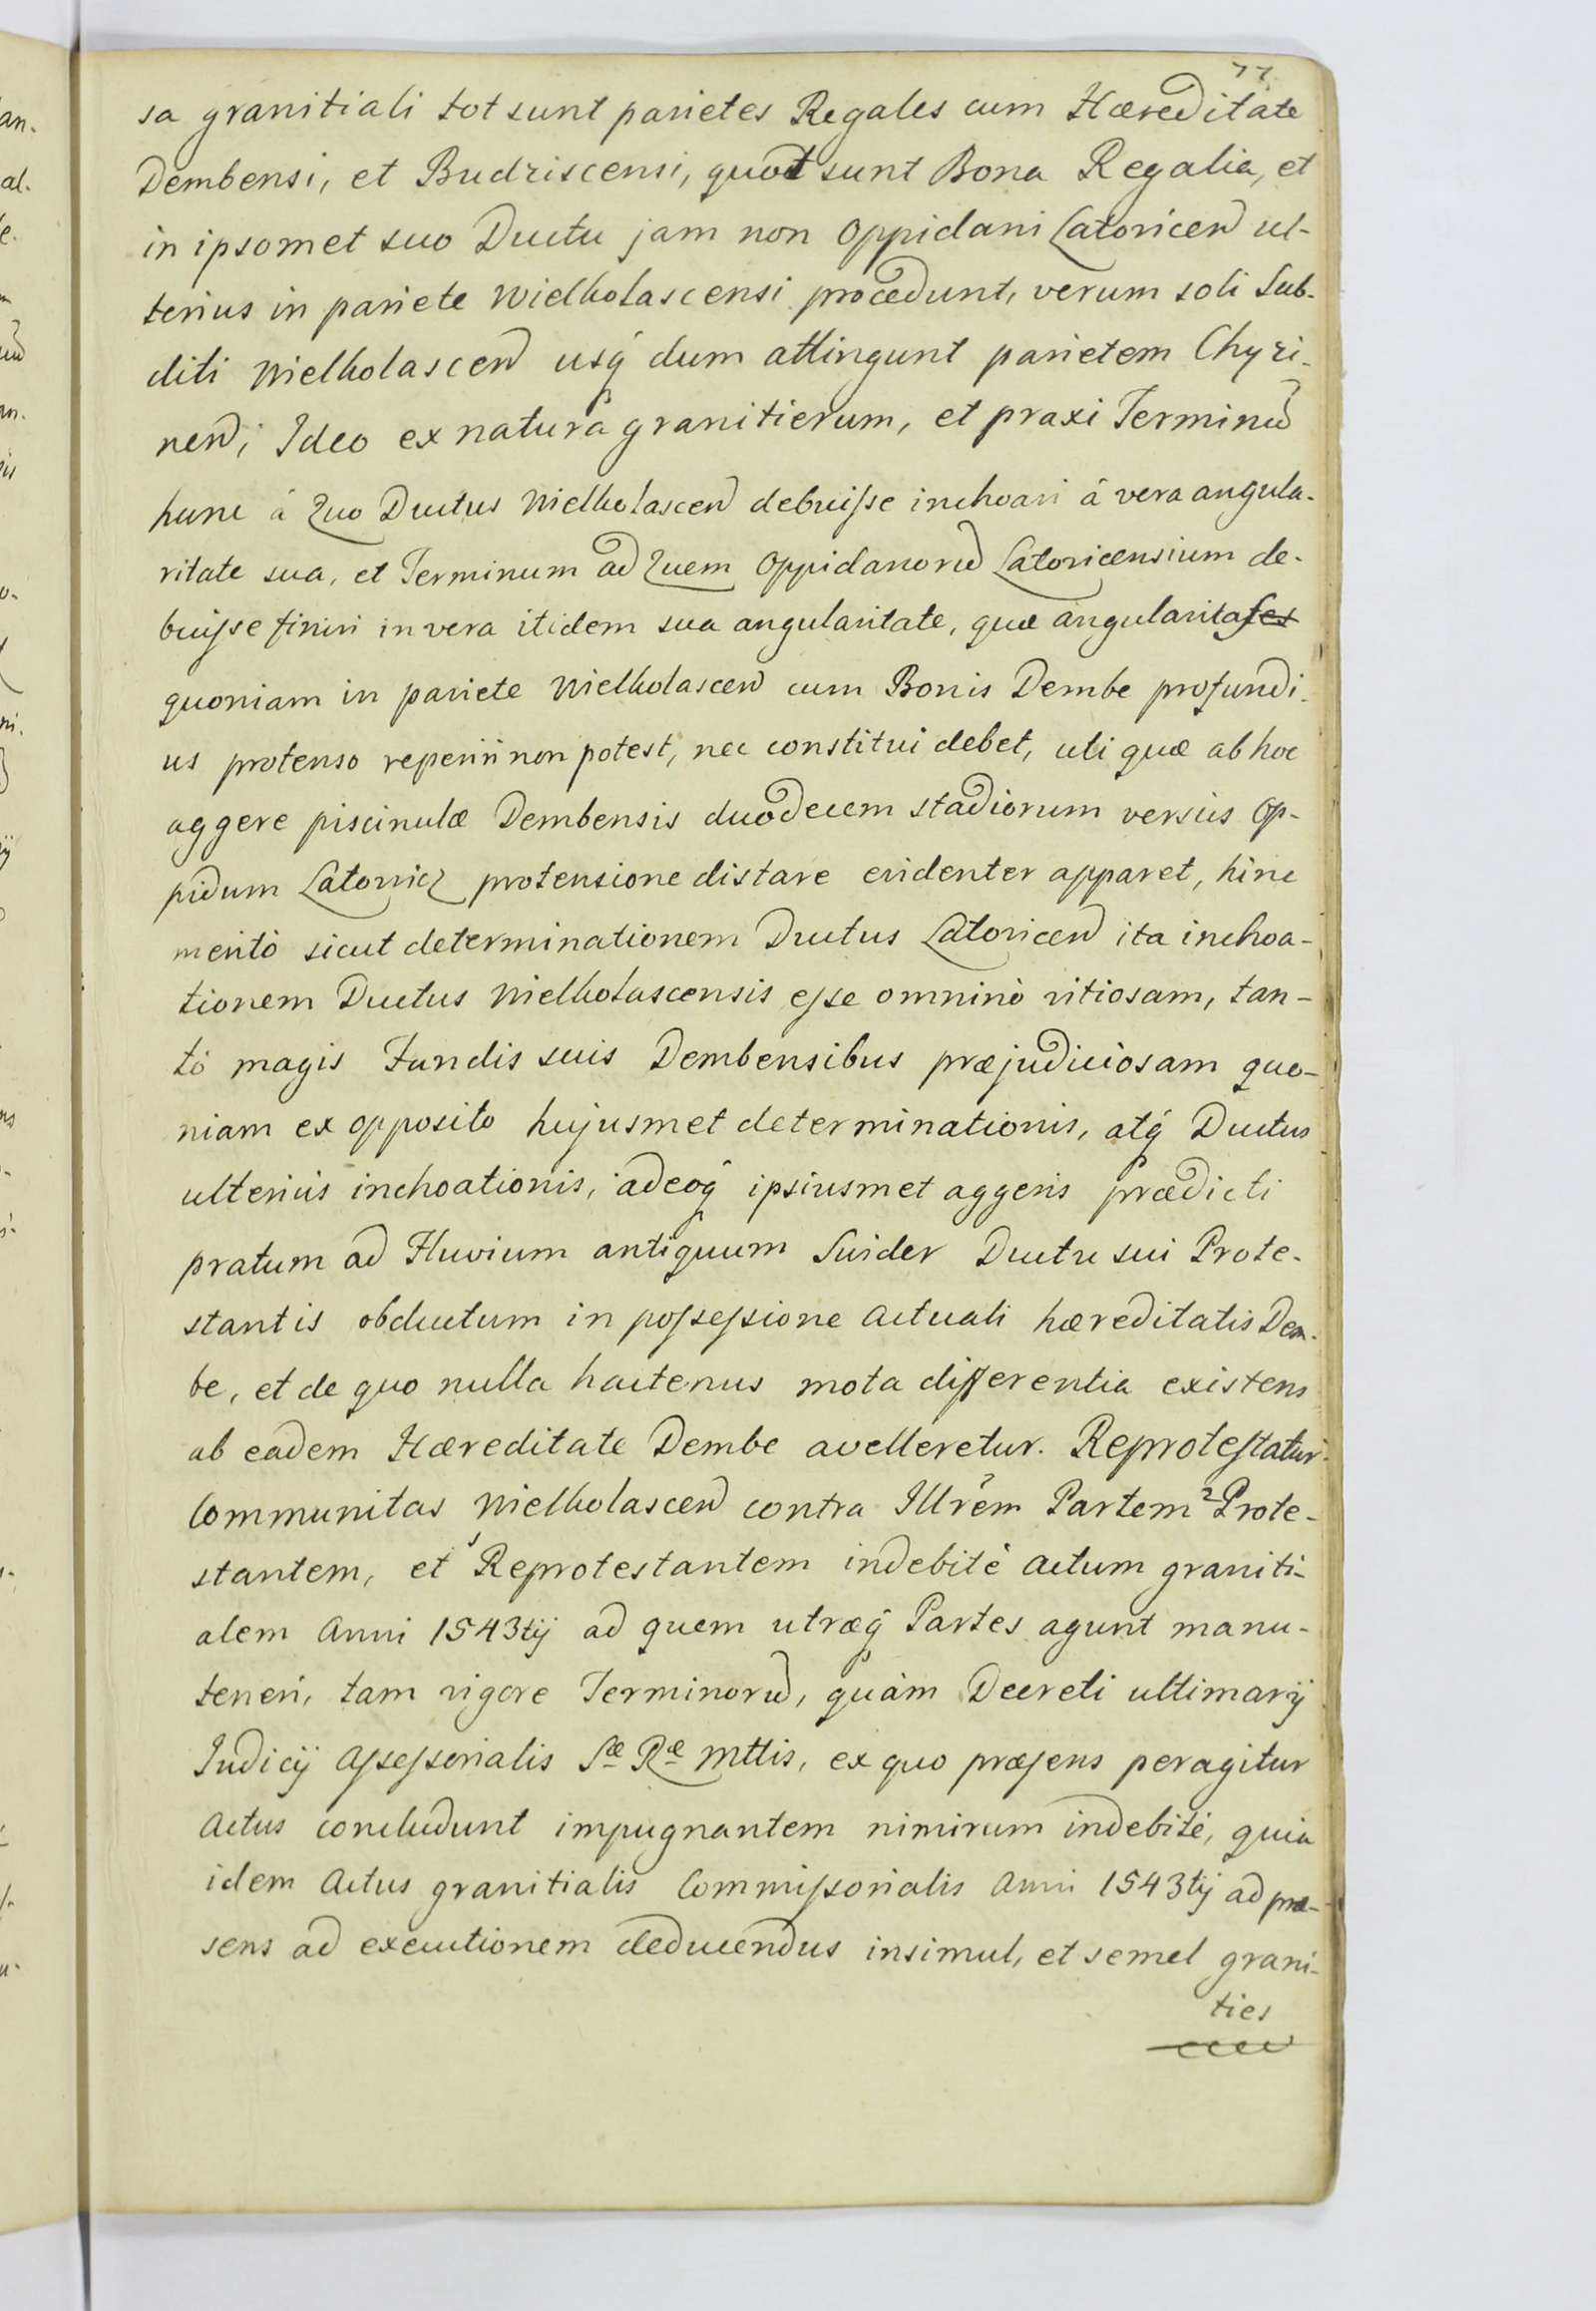 77
sa granitiali tot sunt parietes Regales cum Hæreditate
Dembensi, et Budziscensi, quot sunt Bona Regalia, et
in ipsomet suo Ductu jam non Oppidani Latoricen ul-
terius in pariete Wielholascensi procedunt, verum soli Sub-
diti Wielholascen usq́ dum attingunt parietem Chyzi-
nen; Ideo ex natura granitierum, et praxi Terminū
hunc á Quo Ductus Wielholascen debuisse inchoari á vera angula-
ritate sua, et Terminum ad Quem Oppidanorū Latoricensium de-
buisse finiri in vera itidem sua angularitate, quæ angularitas
quoniam in pariete Wielholascen cum Bonis Dembe profundi-
us protenso reperiri non potest, nec constitui debet, uti quæ ab hoc
aggere piscinulæ Dembensis duodecem stadiorum versus Op-
pidum Latowicz protensione distare evidenter apparet, hinc
meritò sicut determinationem Ductus Latoricen ita inchoa-
tionem Ductus Wielholascensis esse omninò vitiosam, tan-
tò magis Fundis suis Dembensibus præjudiciosam quo-
niam ex opposito hujusmet determinationis, atq́ Ductus
ulteriùs inchoationis, adeoq́ ipsiusmet aggeris prædicti
pratum ad Fluvium antiquum Swider Ductu sui Prote-
stantis obductum in possessione actuali hæreditatis Dem-
be, et de quo nulla hactenus mota differentia existens
ab eadem Hæreditate Dembe avelleretur. Reprotestatur
Communitas Wielholascen contra Illrem Partem ²Prote-
stantem, et ¹Reprotestantem indebitè actum graniti-
alem Anni 1543tij ad quem utræq́ Partes agunt manu-
teneri, tam vigore Terminorū, quàm Decreti ultimarij
Judicij Assessorialis Sæ Ræ Mttis, ex quo præsens peragitur
Actus concludunt impugnantem nimirum indebitè, quia
idem Actus granitialis Commissorialis Anni 1543tij ad præ-
sens ad executionem deducendus insimul, et semel grani-
ties